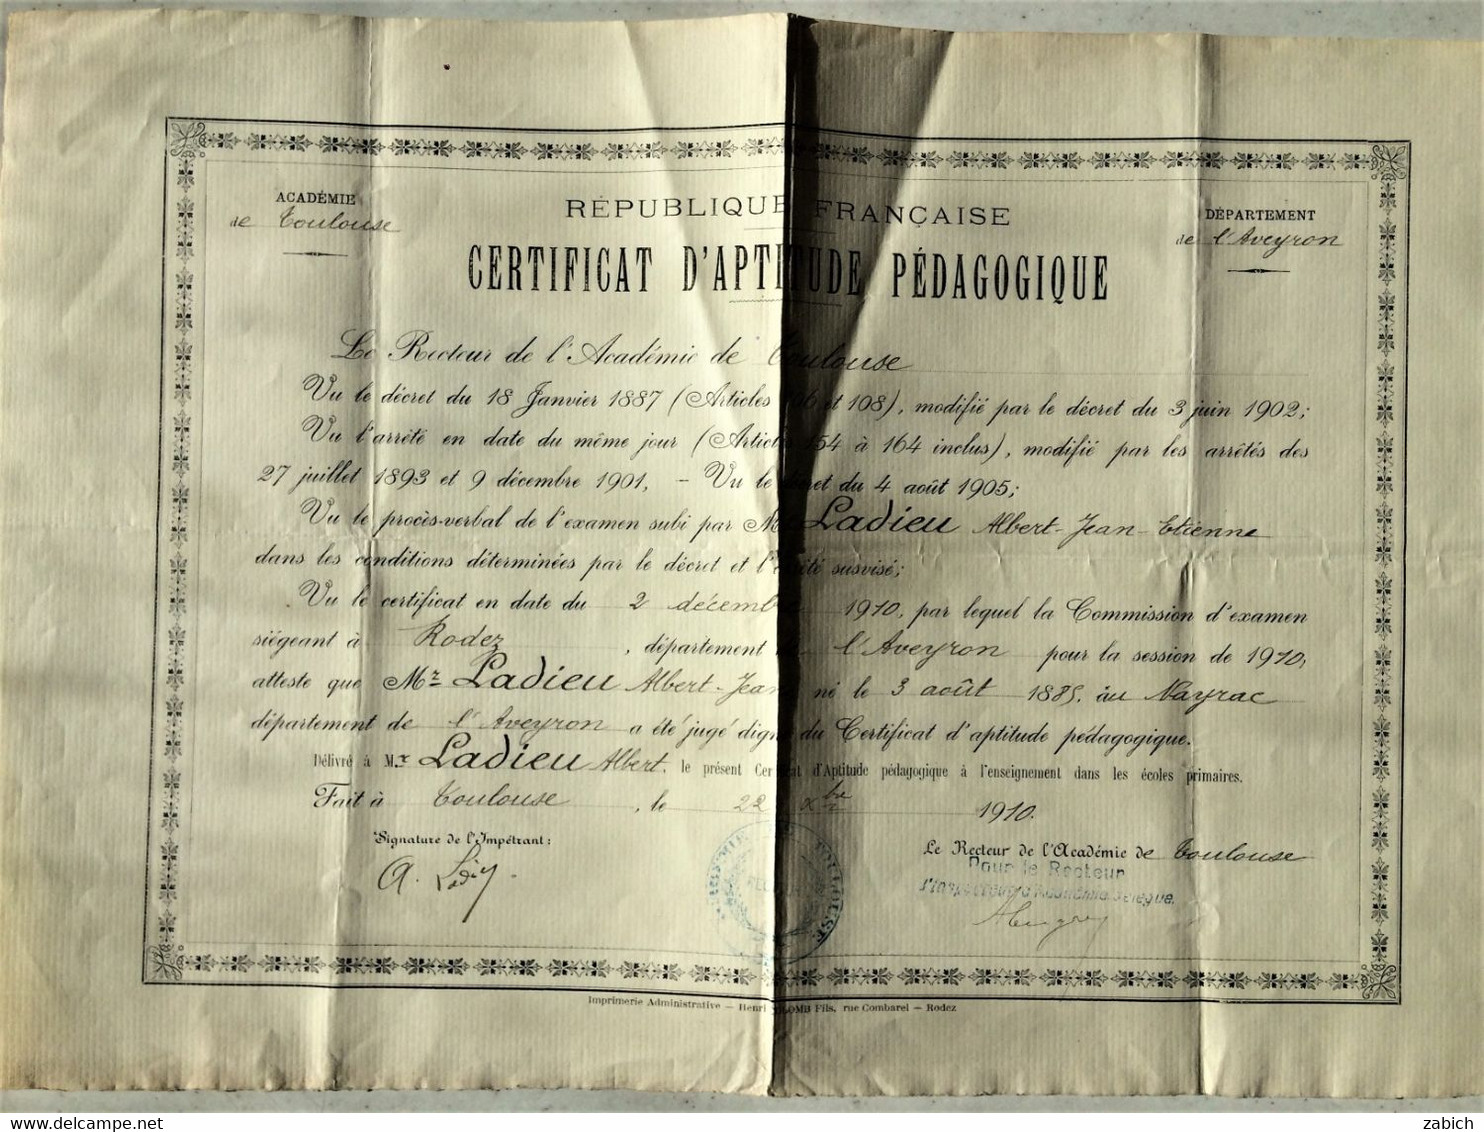 ACADÉMIE
de Toulouse
RÉPUBLIQUE FRANÇAISE
DÉPARTEMENT
de l'Aveyron
CERTIFICAT D'APTITUDE PÉDAGOGIQUE
Le Recteur de l'Académie de Toulouse
Vu le décret du 18 Janvier 1887 (Articles et 108), modifié par le décret du 3 juin 1902;
Vu l'arrêté en date du même jour (Articles 154 à 164 inclus), modifié par les arrêtés des
27 juillet 1893 et 9 décembre 1901, – Vu le décret du 4 août 1905;
Vu le procès-verbal de l'examen subi par Mr Ladieu Albert-Jean-Etienne
dans les conditions déterminées par le décret et l'arrêté susvisé;
Vu le certificat en date du 2 décembre 1910, par lequel la Commission d'examen
siégeant à Rodez, département de l'Aveyron pour la session de 1910,
atteste que Mr Ladieu Albert-Jean né le 3 août 1885, au Nayrac
département de l'Aveyron a été jugé digne du Certificat d'aptitude pédagogique.
Délivré à M.r Ladieu Albert, le présent Certificat d'Aptitude pédagogique à l'enseignement dans les écoles primaires.
Fait à Toulouse, le 22 Xbre 1910.
Signature de l'Impétrant:
Le Recteur de l'Académie de Toulouse
Pour le Recteur
l'Inspecteur d'Académie délégué,
A. Ladieu
TOULOUSE
Imprimerie Administrative — Henri COLOMB Fils, rue Combarel — Rodez
zabich